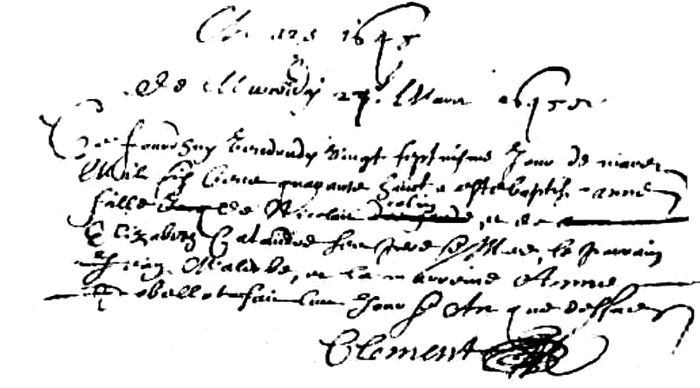 Mars 1648
De Mercredy 27e Mars 1648
Ce jourdhuy vendredy vingt septiesme Jour de mars
Mil six cens quarante huict a este baptisée anne
fille de Nicolas colin et de
Elizabeth Calandre ses pere & Mere, le parrain
Jean Malerbe, et la marreine Anne
obellot fait les Jour & An que dessus
Clement